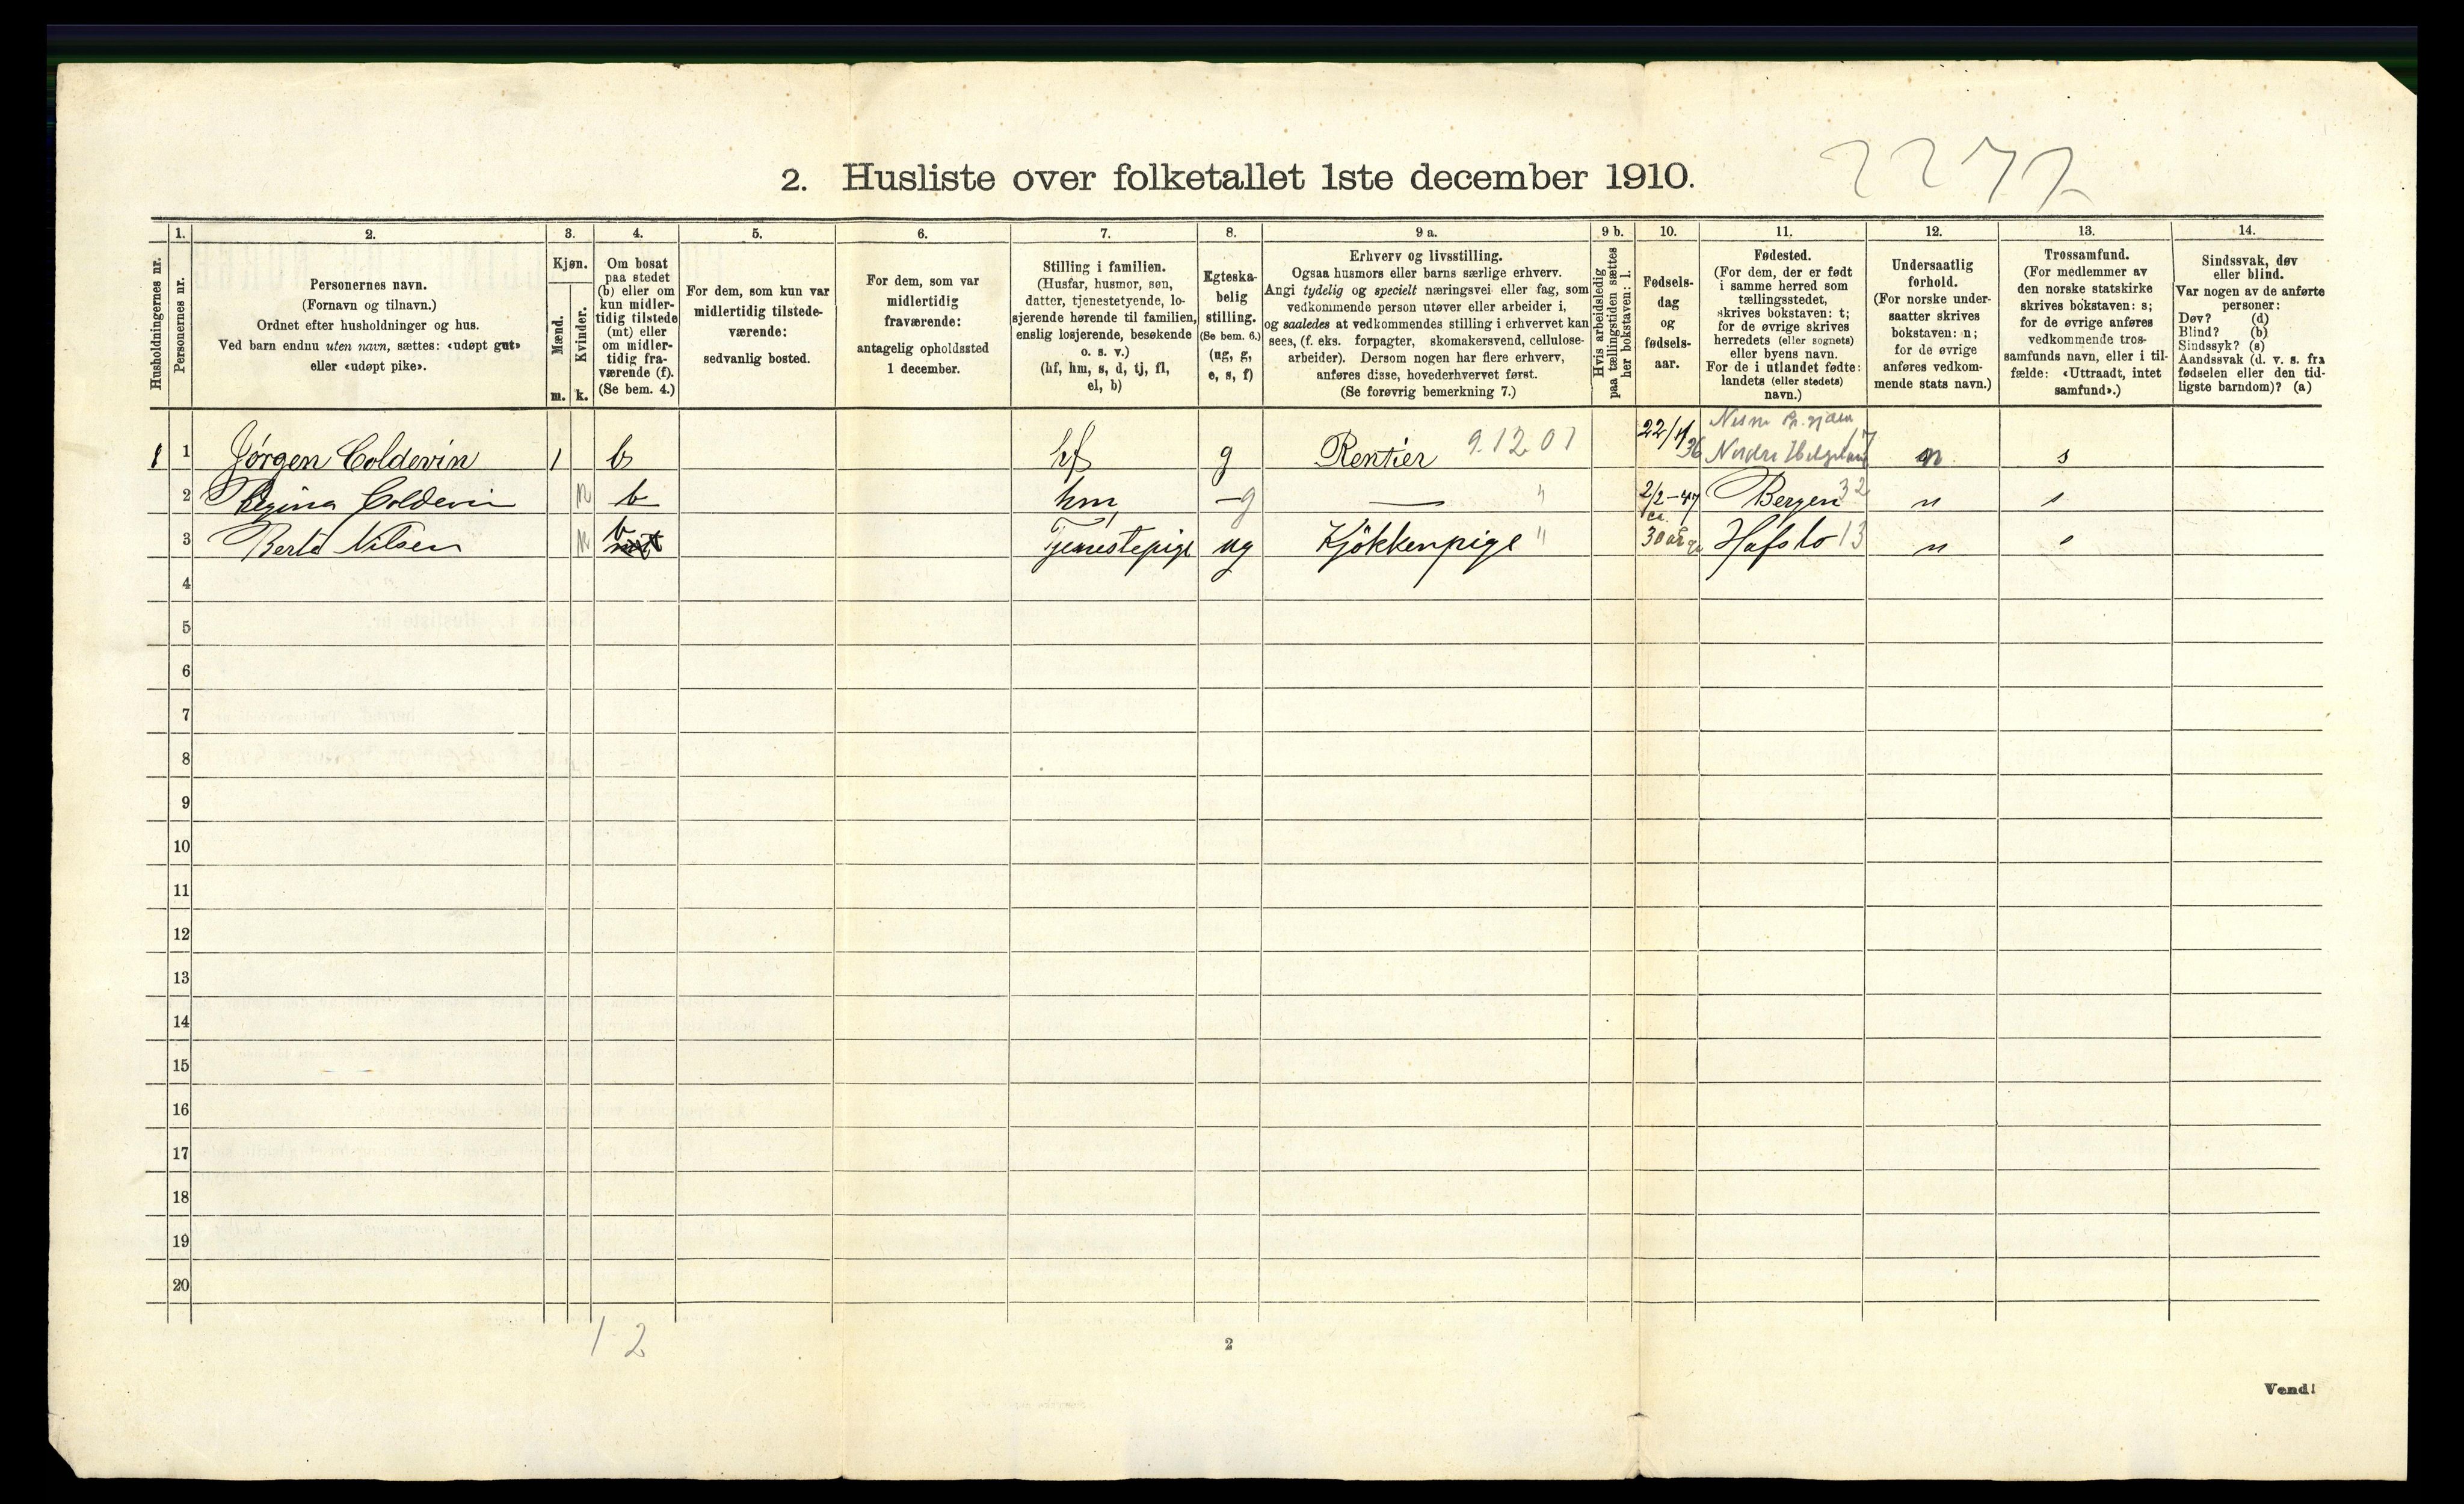 2272
2. Husliste over folketallet 1ste december 1910.
Husholdningernes nr.
1.
Personernes nr.
2.
Personernes navn.
(Fornavn og tilnavn.)
Ordnet efter husholdninger og hus.
Ved barn endnu uten navn, sættes: «udøpt gut»
eller «udøpt pike».
3.
Kjøn.
Mænd.
Kvinder.
m. k.
4.
Om bosat
paa stedet
(b) eller om
kun midler-
tidig tilstede
(mt) eller
om midler-
tidig fra-
værende (f).
(Se bem. 4.)
5.
For dem, som kun var
midlertidig tilstede-
værende:
sedvanlig bosted.
6.
For dem, som var
midlertidig
fraværende:
antagelig opholdssted
1 december.
7.
Stilling i familien.
(Husfar, husmor, søn,
datter, tjenestetyende, lo-
sjerende hørende til familien,
enslig losjerende, besøkende
o. s. v.)
(hf, hm, s, d, tj, fl,
el, b)
8.
Egteska-
belig
stilling.
(Se bem. 6.)
(ug, g,
e, s, f)
9 a.
Erhverv og livsstilling.
Ogsaa husmors eller barns særlige erhverv.
Angi tydelig og specielt næringsvei eller fag, som
vedkommende person utøver eller arbeider i,
og saaledes at vedkommendes stilling i erhvervet kan
sees, (f. eks. forpagter, skomakersvend, cellulose-
arbeider). Dersom nogen har flere erhverv,
anføres disse, hovederhvervet først.
(Se forøvrig bemerkning 7.)
9 b.
Hvis arbeidsledig
paa tællingstiden sættes
her bokstaven: l.
10.
Fødsels-
dag
og
fødsels-
aar.
11.
Fødested.
(For dem, der er født
i samme herred som
tællingsstedet,
skrives bokstaven: t;
for de øvrige skrives
herredets (eller sognets)
eller byens navn.
For de i utlandet fødte:
landets (eller stedets)
navn.)
12.
Undersaatlig
forhold.
(For norske under-
saatter skrives
bokstaven: n;
for de øvrige
anføres vedkom-
mende stats navn.)
13.
Trossamfund.
(For medlemmer av
den norske statskirke
skrives bokstaven: s;
for de øvrige anføres
vedkommende tros-
samfunds navn, eller i til-
fælde: «Uttraadt, intet
samfund».)
14.
Sindssvak, døv
eller blind.
Var nogen av de anførte
personer:
Døv? (d)
Blind? (b)
Sindssyk? (s)
Aandssvak (d. v. s. fra
fødselen eller den tid-
ligste barndom)? (a)
1 1 Jörgen Coldevin 1 b hf g Rentier 9.12.01 22/4 36 Nordre Helgeland 17 n s
2 Regina Coldevin b hm — g — " 2/2-47 Bergen 32 n s
3 Berte Nilsen b mt Tjenestepige ug Kjökkenpige " ca. 30 år Hafslo 13 n s
4
5
6
7
8
9
10
11
12
13
14
15
16
17
18
19
20
1 2
2
Vend!